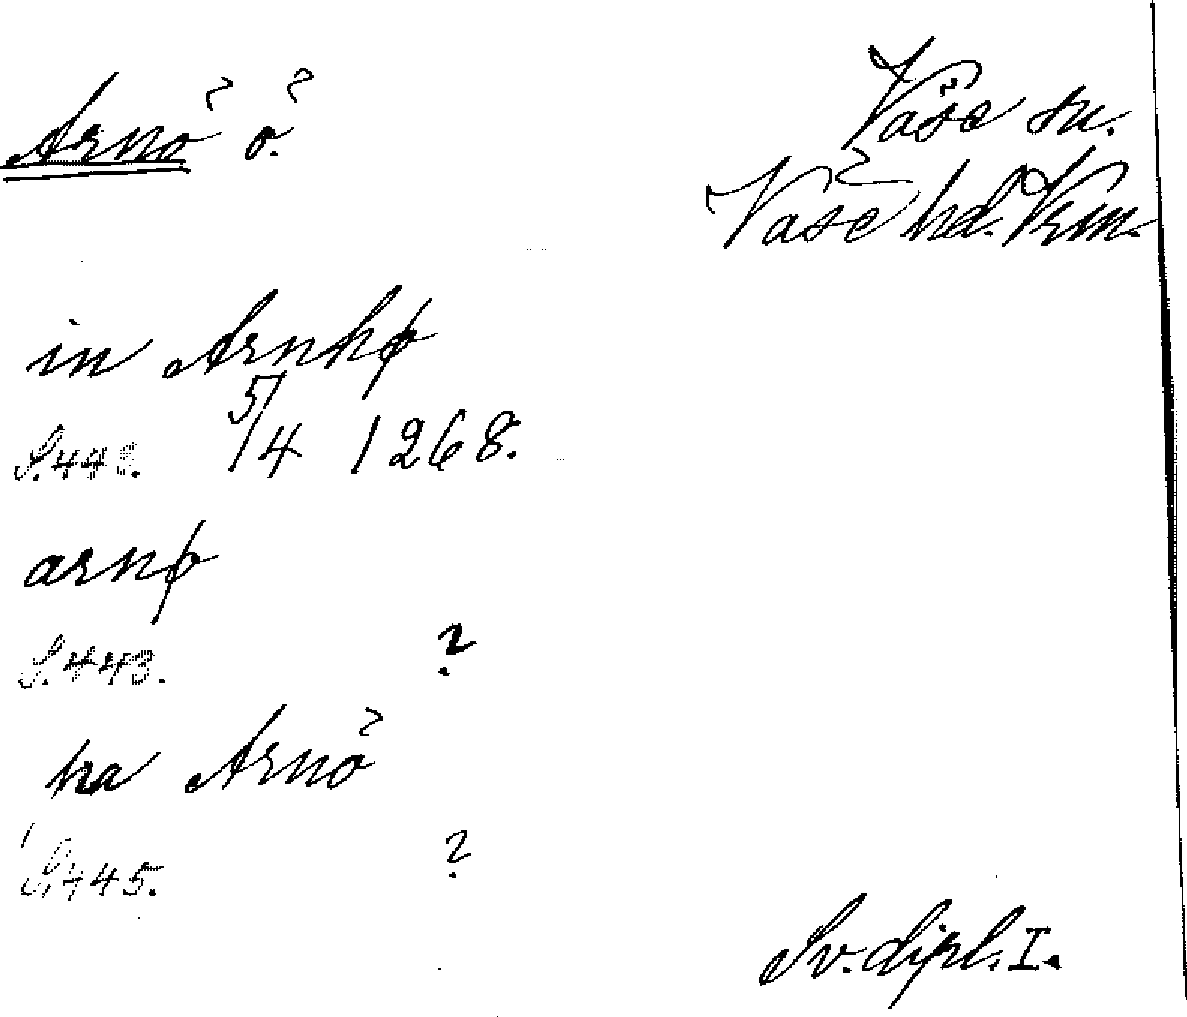 Arnö ö.
Väse sn.
Väse hd. Vrm.
in Arnhø
S. 443. 5/4 1268.
arnø
S. 443. ?
na Arnö
S. 445. ?
Sv. dipl. I.